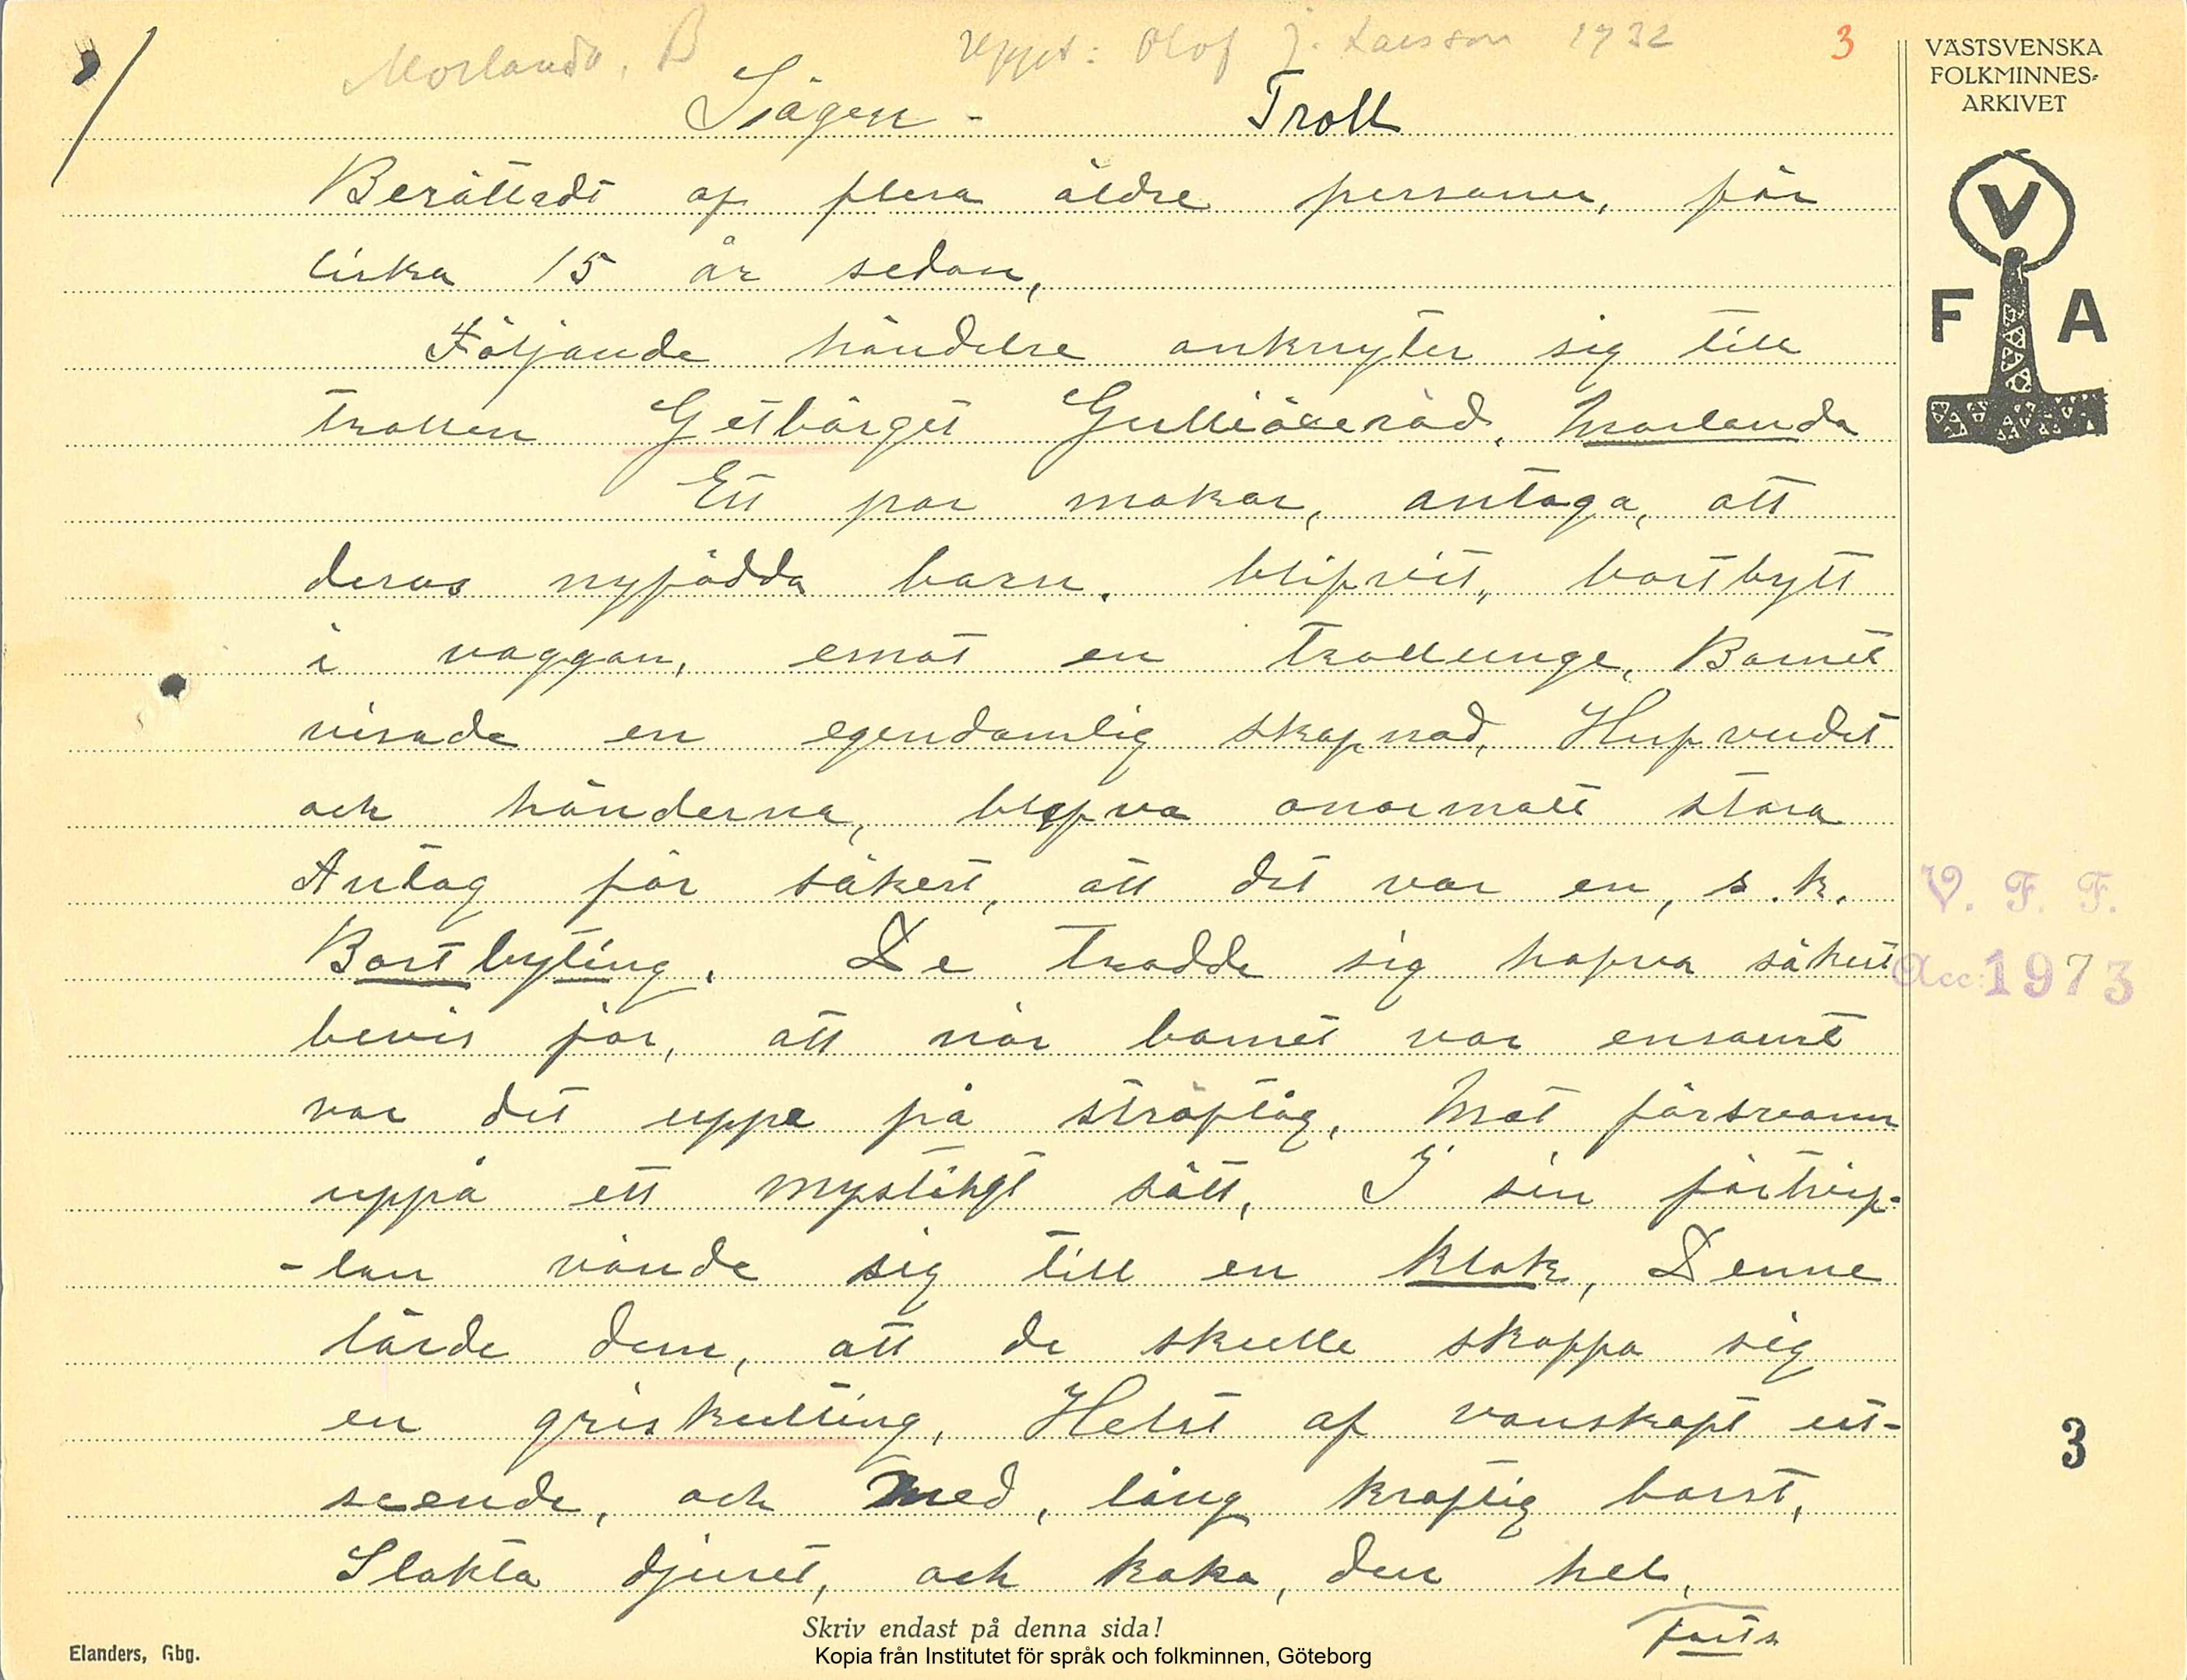 Morlanda, B Uppt: Olof J. Larsson 1932 3
VÄSTSVENSKA
FOLKMINNES-
ARKIVET
Sägen - Troll
V
F A
Berättadt af flera äldre personer, för
cirka 15 år sedan,
Följande händelse anknyter sig till
trollen Getbärget Morlanda
Ett par makar, antaga, att
deras nyfödda barn, blifvit, bortbytt
i vaggan, emot en trollunge, Barnet
visade en egendomlig skapnad, Hufvudet
och händerna, blefva anormalt stora
Antog för säkert, att det var en, s.k.
Bortbyting. De trodde sig hafva säkert
bevis för, att när barnet var ensamt
var det uppe på ströftåg, Mat försvann
uppå ett mystikgt sätt, I sin förtvif-
-lan vände sig till en klok, Denne
lärde dem, att de skulle skaffa sig
en griskulting, Helst af vanskapt ut-
seende, och med, lång kraftig borst,
Slakta djuret, och koka, den hel,
Forts
V. F. F.
Acc: 1973
3
Skriv endast på denna sida!
Elanders, Gbg.
Kopia från Institutet för språk och folkminnen, Göteborg